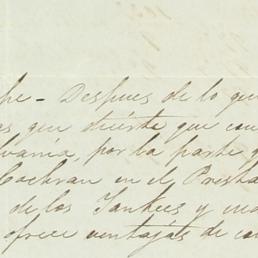 pe - Despues de lo que
as que diriste que con
lvania, por la parte q
Cochran en el Presha
de los Yankees y
ofrece ventajas de co